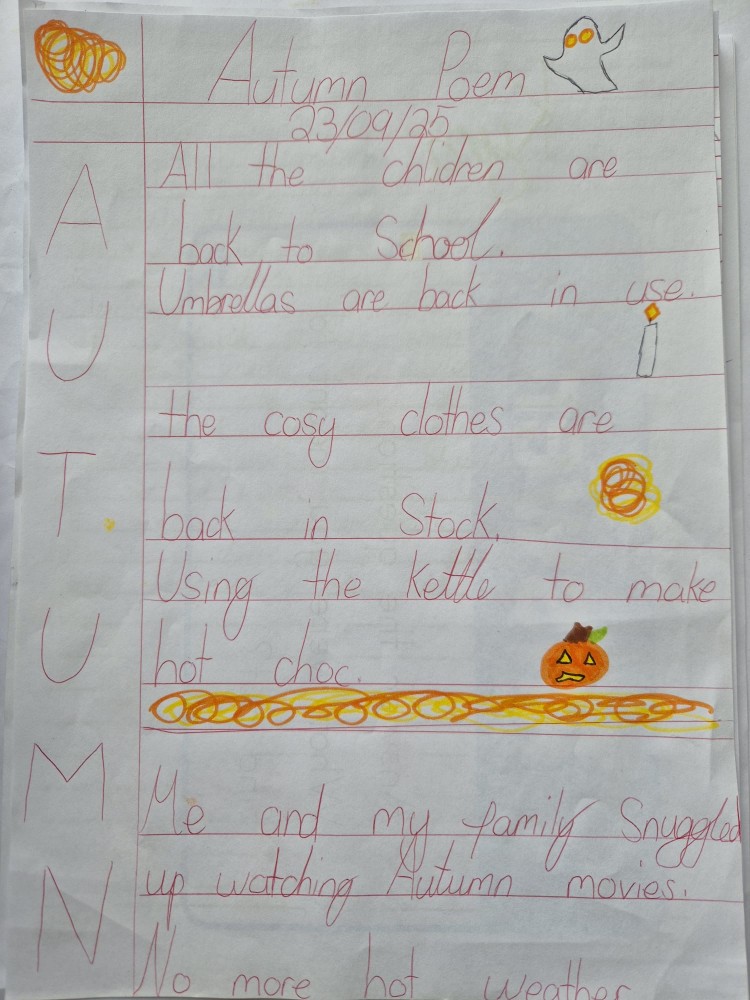 Autumn Poem
23/09/25
A
All the chlidren are
back to School.
U
Umbrellas are back in use.
T
the cosy clothes are
back in Stock.
U
Using the kettle to make
hot choc.
M
Me and my family Snuggled
up watching Autumn movies.
N
No more hot weather